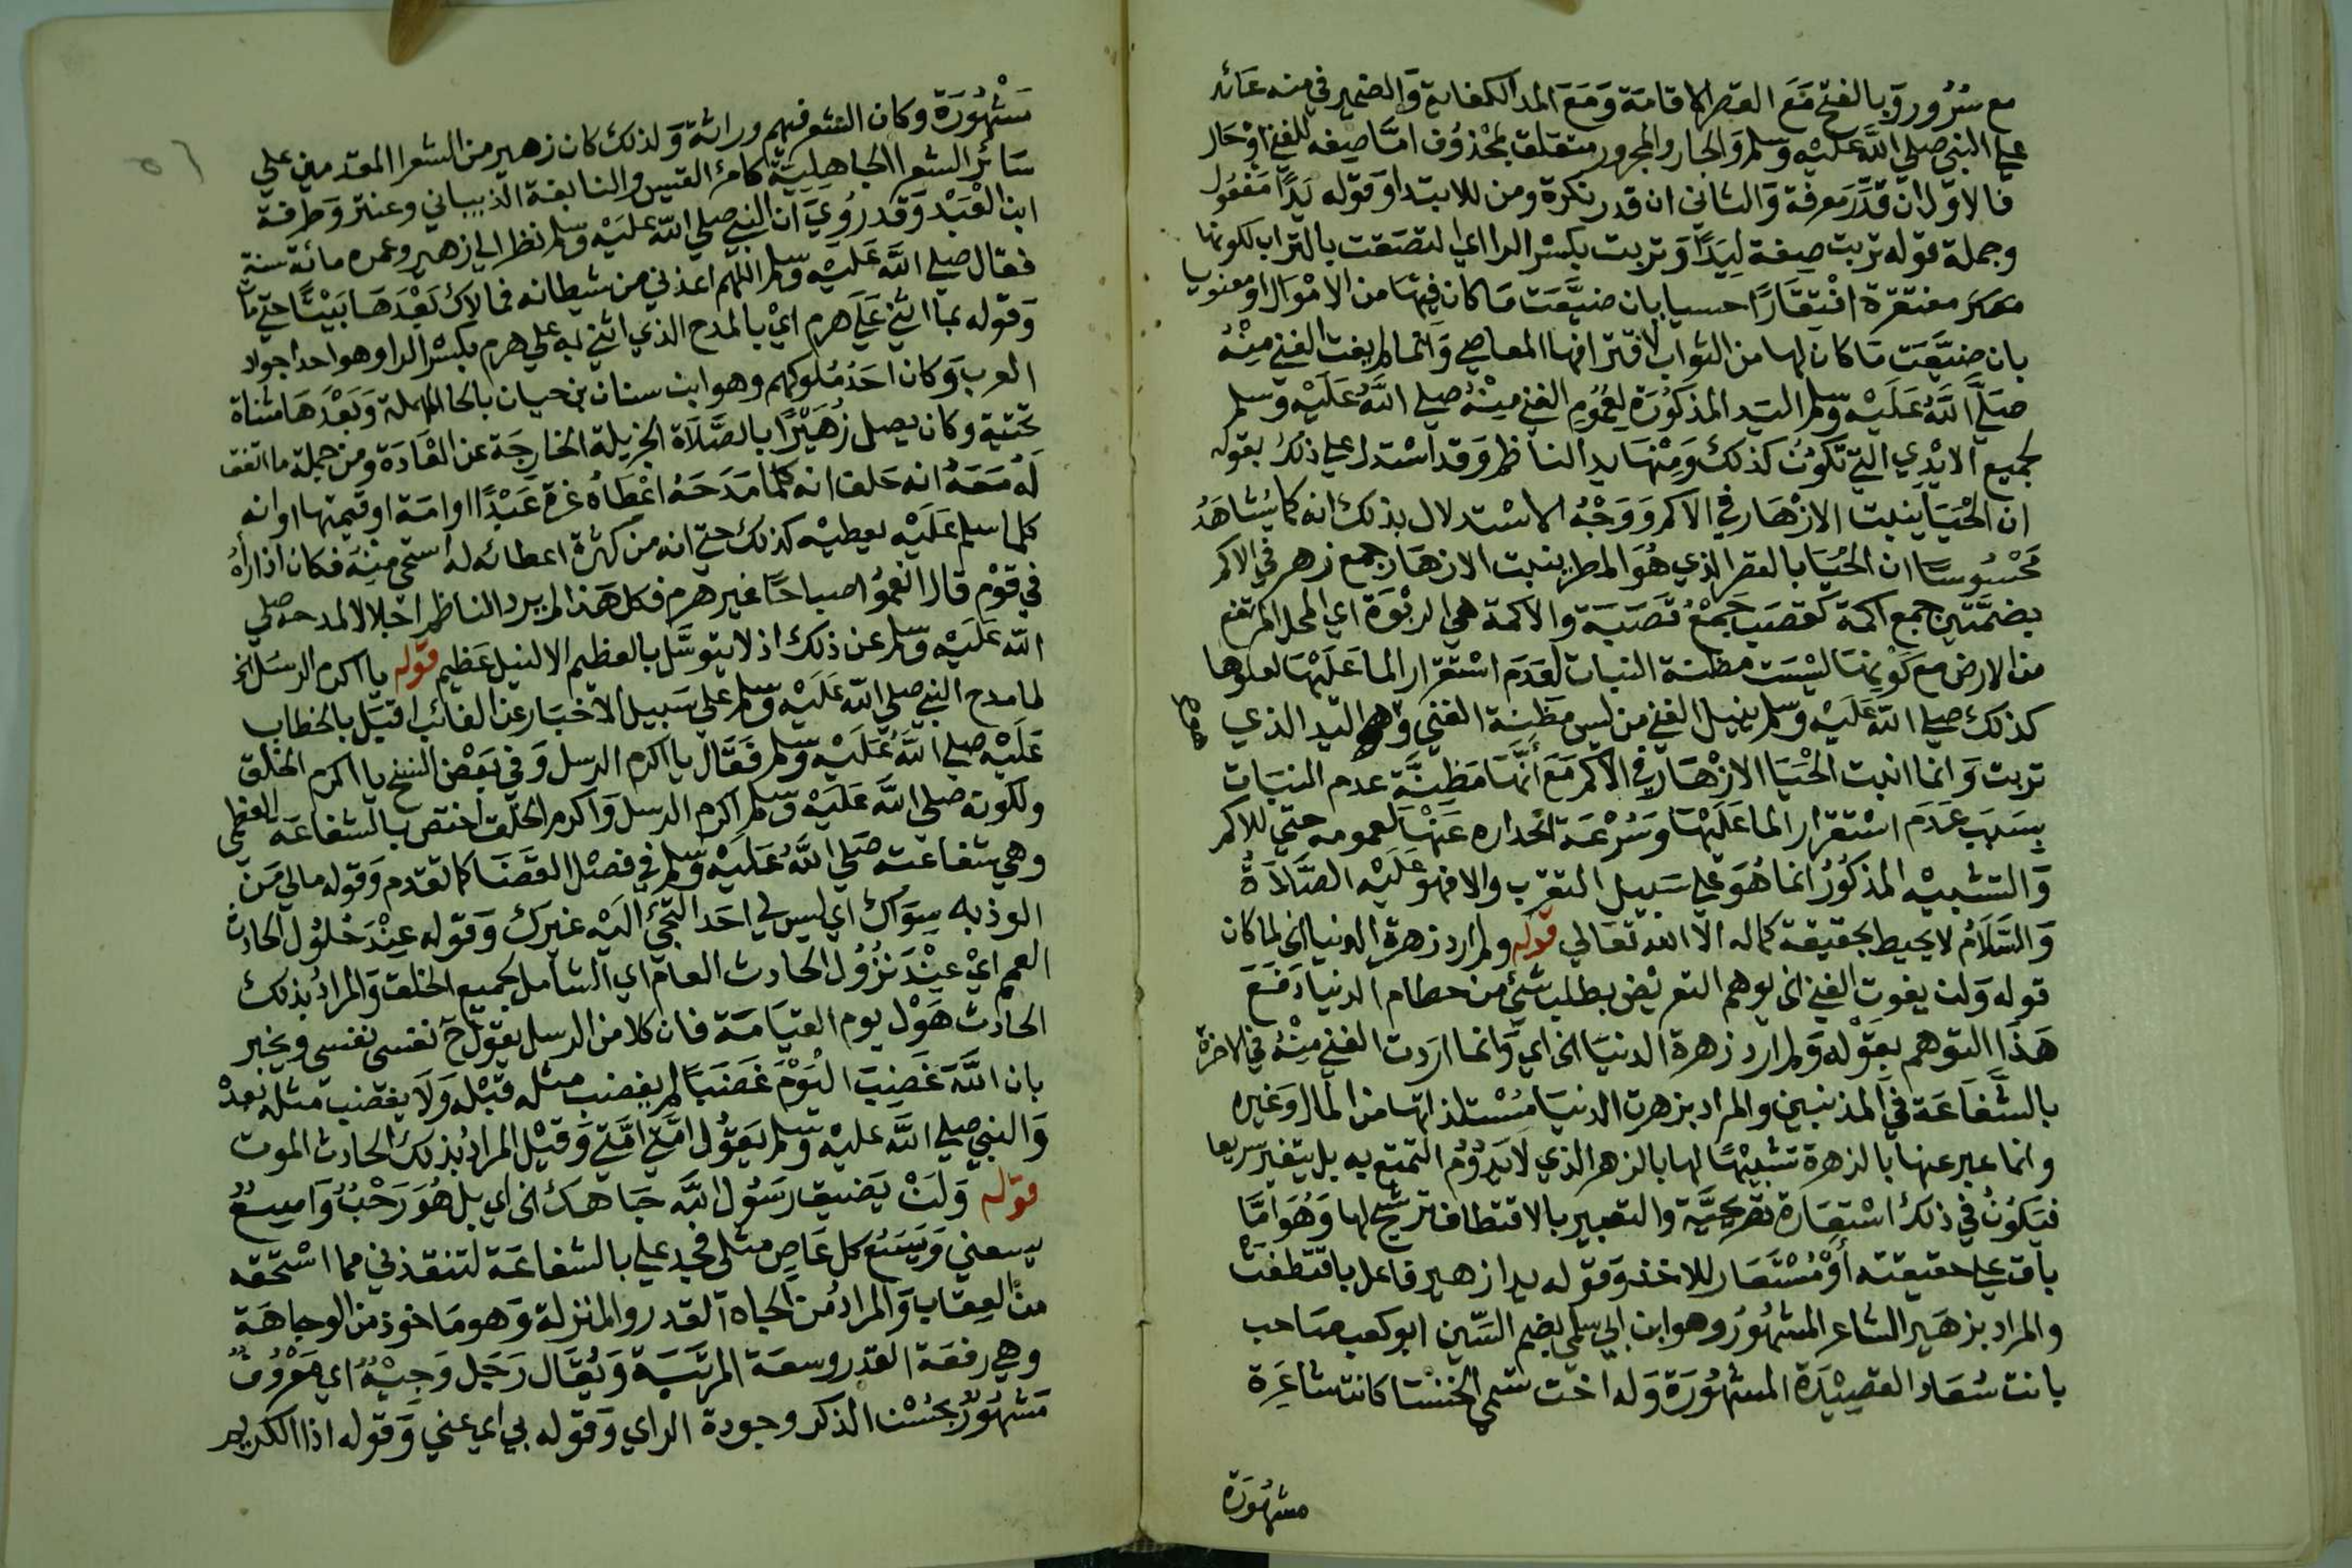 مع سُرُور وَبالفتح مَعَ القصر الاقامَة وَمَعَ المد الكفاية وَالضمير في منه عَائد
على النبي صلى اللَّه عَليْه وَسلم وَالجار والمجرور متعَلق بمحْذوُف امَّا صِفه للغني اوْ حَال
فالاوّل ان قدَّرَ معرفة وَالثاني ان قدر نكرة ومن للابتدا وَقوله يَدًا مَفعُول
وجملة قوله تربت صِفة لِيَدًا وَتربت بكسْر الرا اي التصَقت بالتراب لكونها
مفتقرة افْتِقَارًا حسيا بان ضيَّعَت مَا كان فِيهَا من الامْوَال اوْ مَعنويا
بان ضيَّعَت مَا كان لها من الثواب لاقترافها المعاصي وَانما لم يفت الغني مِنْهُ
صَلَّى اللَّهُ عَلَيْه وَسلم اليَد المذكوُرَة لعُمُوم الغني مِنْهُ صلي اللَّهُ عَلَيْه وَسلم
لجميع الايْدِي التي تكوُن كذلك وَمِنْهَا يد الناظم وَقد اسْتدل على ذلك بقوله
ان الْحَيَا يُنبت الازْهَار في الاكم وَوَجْهُ الاسْتدلال بذلك انه كما يُشاهَدُ
مَحْسُوسًا ان الحَيَا بالقصر الذي هُوَ المطر ينبت الازهَار جمع زهر في الاكم
بضمّتَين جمع اكمة كقصَب جَمْعُ قصَبَة والاكمة هي الربْوَة اي المحل المرتفع
من الارض مع كوْنهَا ليْسَت مظنة النبات لعَدَم اسْتقرار الما عَلَيْهَا لعلوها
كذلك صلي اللّه عَلَيْه وَسلم ينيل الغني من ليس مَظِنَة الغني وَهو اليَد الذي
تربت وَانما انبت الحْيَا الازْهَار في الاكم مَعَ أنَّهَا مَظِنَّة عدم النبَات
بسَبَب عَدَم اسْتقرار الما عَلَيْهَا وَسُرْعَة انحداره عَنْهَا لعمومه حتي للاكم
وَالتشبيْه المذكوُر انما هُوَ علي سَبيل التقرب والا فهو عَلَيْه الصَّلاَةُ
وَالسَّلاَمُ لا يحيط بحقيقة كماله الا اللّه تعَالي قوله ولم ارد زهرة الدنيا الخ لما كان
قوله وَلن يفوت الغني الخ يوهم التعريْض بطلب شئ من حطام الدنيا دَفعَ
هَذَا التوهم بقوْله وَلم ارد زهرة الدنيَا الخ اي وَانما ارَدت الغني مِنْهُ في الاخرة
بالشَّفَاعَة في المذنبين والمراد بزهرت الدنيَا مُسْتلذاتهَا من المال وَغيره
وانما عبر عنها بالزهرة تشبيْهًا لها بالزهر الذي لا يَدُوُم التمتع به بل يتغير سريعا
فيَكوُن في ذلك اسْتِعَارة تصْريحيَّة والتعبير بالاقتطاف ترشيح لها وَهُوَ امَّا
باق علي حقيقته أوْ مُسْتعَار للاخذ وَقوله يدا زهير فاعل باقتطفت
والمراد بزهَير الشاعر المشهُوُر وهو ابن ابي سلمي بضم السّين ابو كعب صَاحب
بانت سُعَاد القصيْدَة المشهُوُرَة وَله اخت تسمي الخنسَا كانت شاعِرَة
مشهُوُرَة
مَشْهُوُرَة وكان الشعر فيهم وراثة وَلذلك كان زهير من الشعرا المقدمين علي
سَائر الشعرا الجاهِلِيَّة كامرُ القيس والنابغة الذبياني وعنتر وَطرفة
ابن العَبْد وَقد رُوِيَ ان النبي صلي اللّه عليْه وَسلم نظر الي زهير وعمره مائة سنة
فقال صلي اللَّه عَلَيْه وَسلم اللهم اعذني من شيطانه فما لاك بَعْدَهَا بَيْتًا حتي مات
وَقوله بما اثني عَلَى هرم ايْ بالمدح الذي اثني به علي هرم بكسْر الرا وهو احد اجواد
العرب وَكان احَد مُلوكهم وهو ابن سنان بن حيان بالحا المهملة وَبَعْدَهَا مثناة
تحتية وكان يصل زُهَيْرًا بالصَّلاَة الجزيلة الخارجَة عن العَادَة ومن جملة ما اتفق
لَهُ مَعَهُ انه حَلف انه كلما مَدَحَهُ اعْطاهُ غرة عَبْدًا او امَة او قيمتها او انه
كلما سلم عَلَيْه يعطيْه كذلك حتي انه من كثرة اعطائه لهُ استحي مِنهَ فكان اذا رآهُ
في قوْم قال انعمُوا صباحًا غير هرم فكل هَذا لم يرد الناظم اجلالا لمدحه صلي
اللّه عَلَيْه وَسلم عن ذلك اذ لا يتوسَّل بالعظيم الا لنيل عَظيم قوله يا اكرم الرسُل الخ
لما مدح النبي صلي اللّه عَلَيْه وَسلم على سَبيل الاخبَار عن الغائب اقبَل بالخطاب
عَلَيْه صلي اللَّهُ عَلَيْه وَسلم فقَال يا اكرم الرسل وَفي بَعْض النسخ يا اكرم الخلق
ولكونه صلى اللَّه عَلَيْه وَسلم اكرم الرسل وَاكرم الخلق اختص بالشفاعَة العظمى
وهي شفاعته صَلي اللَّهُ عَلَيْه وَسلم في فصْل القضَا كما تقدم وَقوله مالي مَن
الوذ به سِوَاك اي ليس لي احَد التجئ اليْه غيرك وَقوله عِنْدَ حُلوُل الحادث
العمم ايْ عِنْدَ نزُوُل الحادث العام اي الشامل لجميع الخلق وَالمرادُ بذلك
الحادث هَوْل يوم القيَامَة فان كلا من الرسل يقول ح نفسي نفسي ويخبر
بان اللَّهَ غَضِبَ اليْوَمَ غَضَبًا لم يغضب مثله قبْله وَلاَ يغضب مثله بعدْ
وَالنبي صلي اللَّه عليْه وَسلم يَقوُل امَّتي امَّتي وَقيْل المرادُ بذلك الحادث الموت
قوله وَلَنْ يَضيق رَسُول اللَّه جَاهك الخ اي بل هُوَ رَحْبٌ وَاسِعٌ
يسعني وَيَسَعُ كل عَاصٍ مثلي فجد علي بالشفاعَة لتنقذني مما اسْتحقه
من العِقاب وَالمرادُ من الجاه القدر والمنزلة وَهو مَاخوذ من الوجاهَة
وهي رفعَة القدر وسعَة المرتبَة وَيُقَال رَجَل وَجيْهٌ اي مَعْروُفٌ
مَشهُوُرٌ بحُسْن الذكر وجودة الراي وَقوله بي اي عني وَقوله اذا الكريم